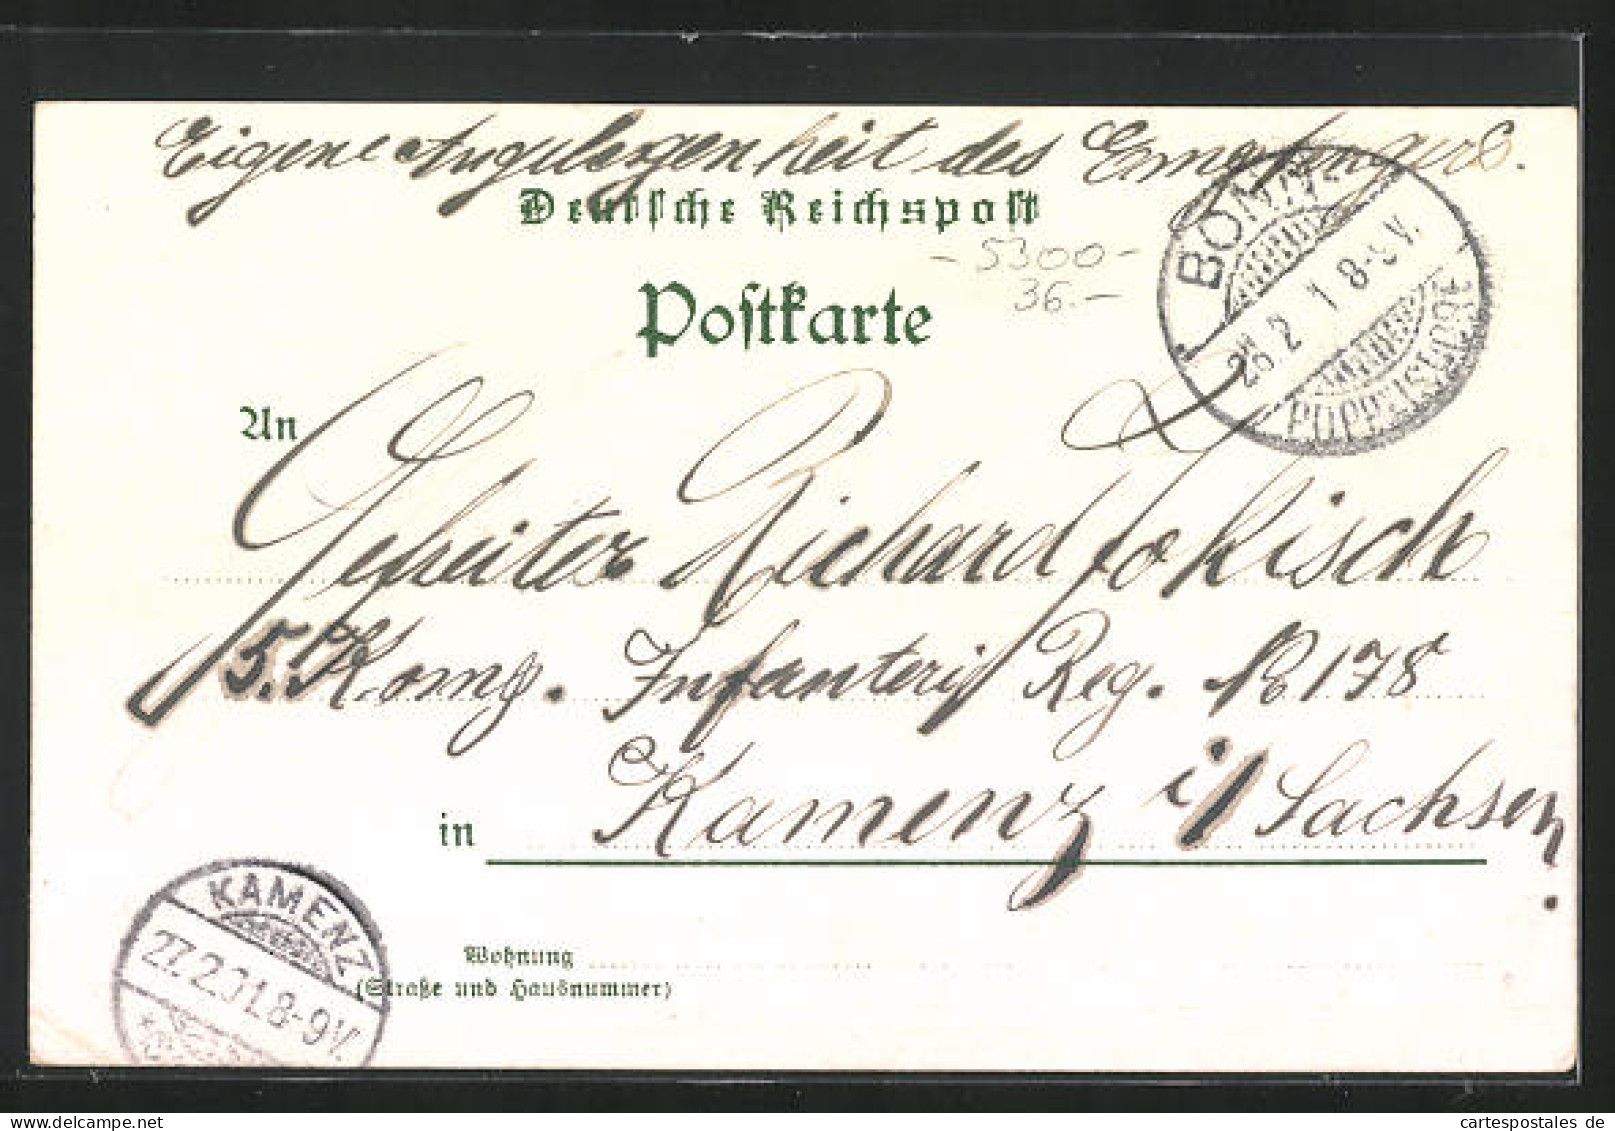 Eigene Angelegenheit des Empfängers.
Deutsche Reichspost
Postkarte
-5300-
36.-
BONN
26.2 1 8-9V.
POPPELSDORF
An
Gefreiter Richard Jokisch
5. Komp. Infanterie Reg. No 178
in Kamenz i/Sachsen.
Wohnung
(Straße und Hausnummer)
KAMENZ
27.2.01.8-9V.
cartespostales de